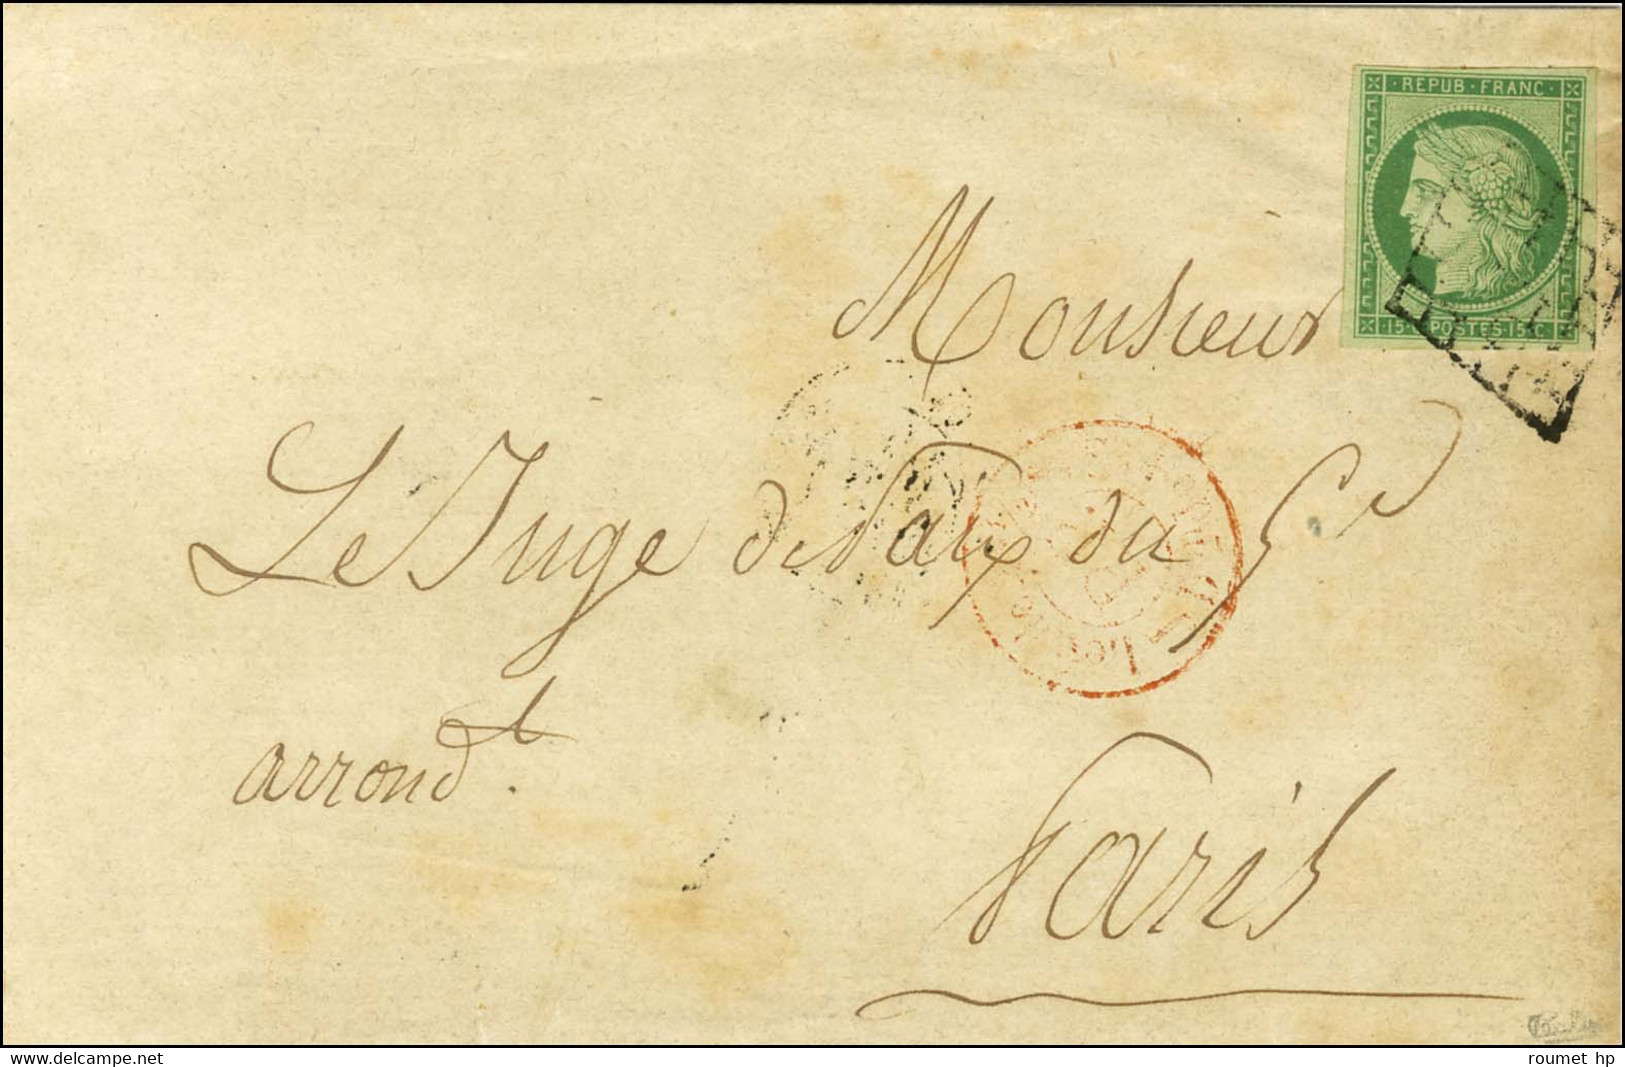 REPUB · FRANC ·
15 · C POSTES · 15 · C
Monsieur
Le Juge de Paix du 5e
arrondt.
Paris
www.delcampe.net
roumet hp